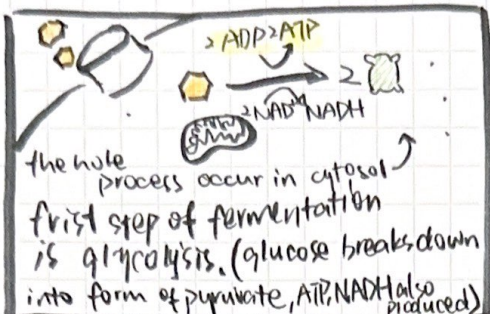 2 ADP 2 ATP
2
2NAD⁺ NADH
the hole
process occur in cytosol
frist step of fermentation
is glycolysis. (glucose breaks down
into form of pyruvate, ATP, NADH also
produced)